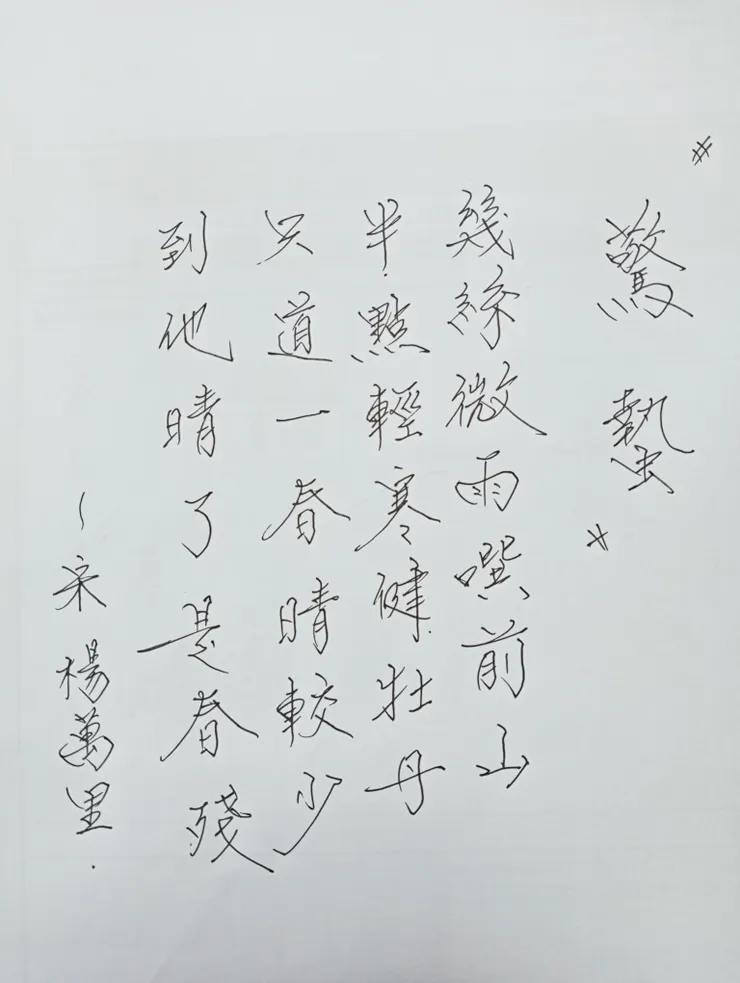 # 驚蟄 #
幾絲微雨噀前山
半點輕寒健牡丹
只道一春晴較少
到他晴了是春殘
~宋 楊萬里.